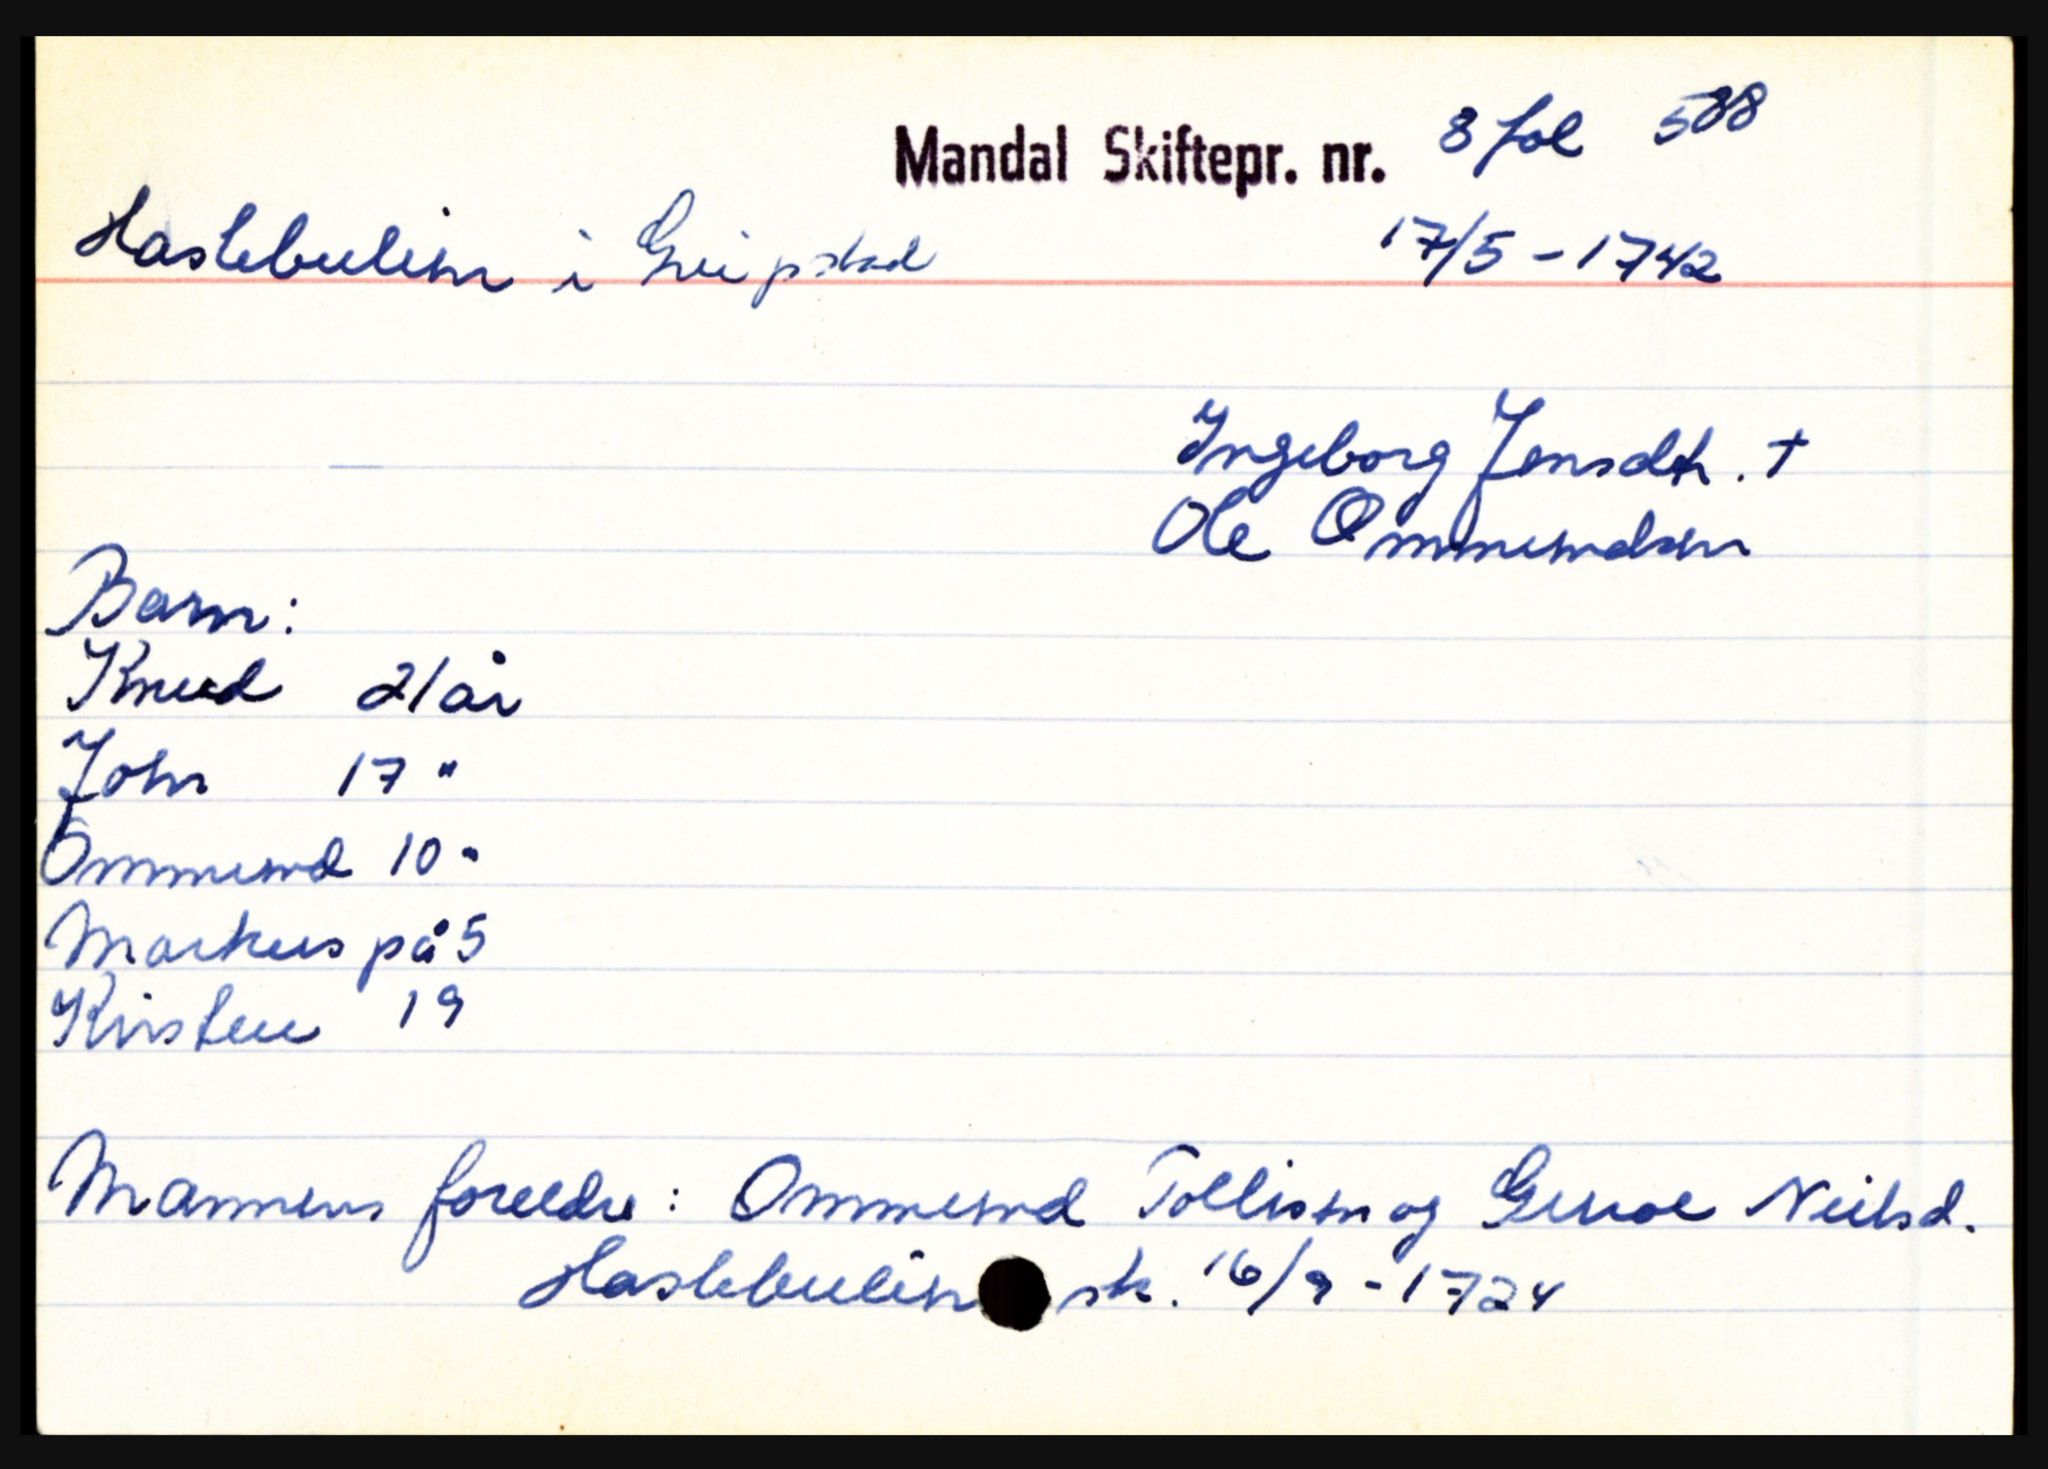 Mandal Skiftepr. nr. 8 fol 588
Haslebulien i Greipstad 17/5 - 1742
Ingeborg Jensdtr. +
Ole Ommundsen
Barn:
Knud 21 år
John 17 "
Ommund 10 "
Markus på 5
Kirsten 19
Mannens foreldre: Ommund Tollisen og Neilsd.
Haslebulien sk. 16/9 - 1724